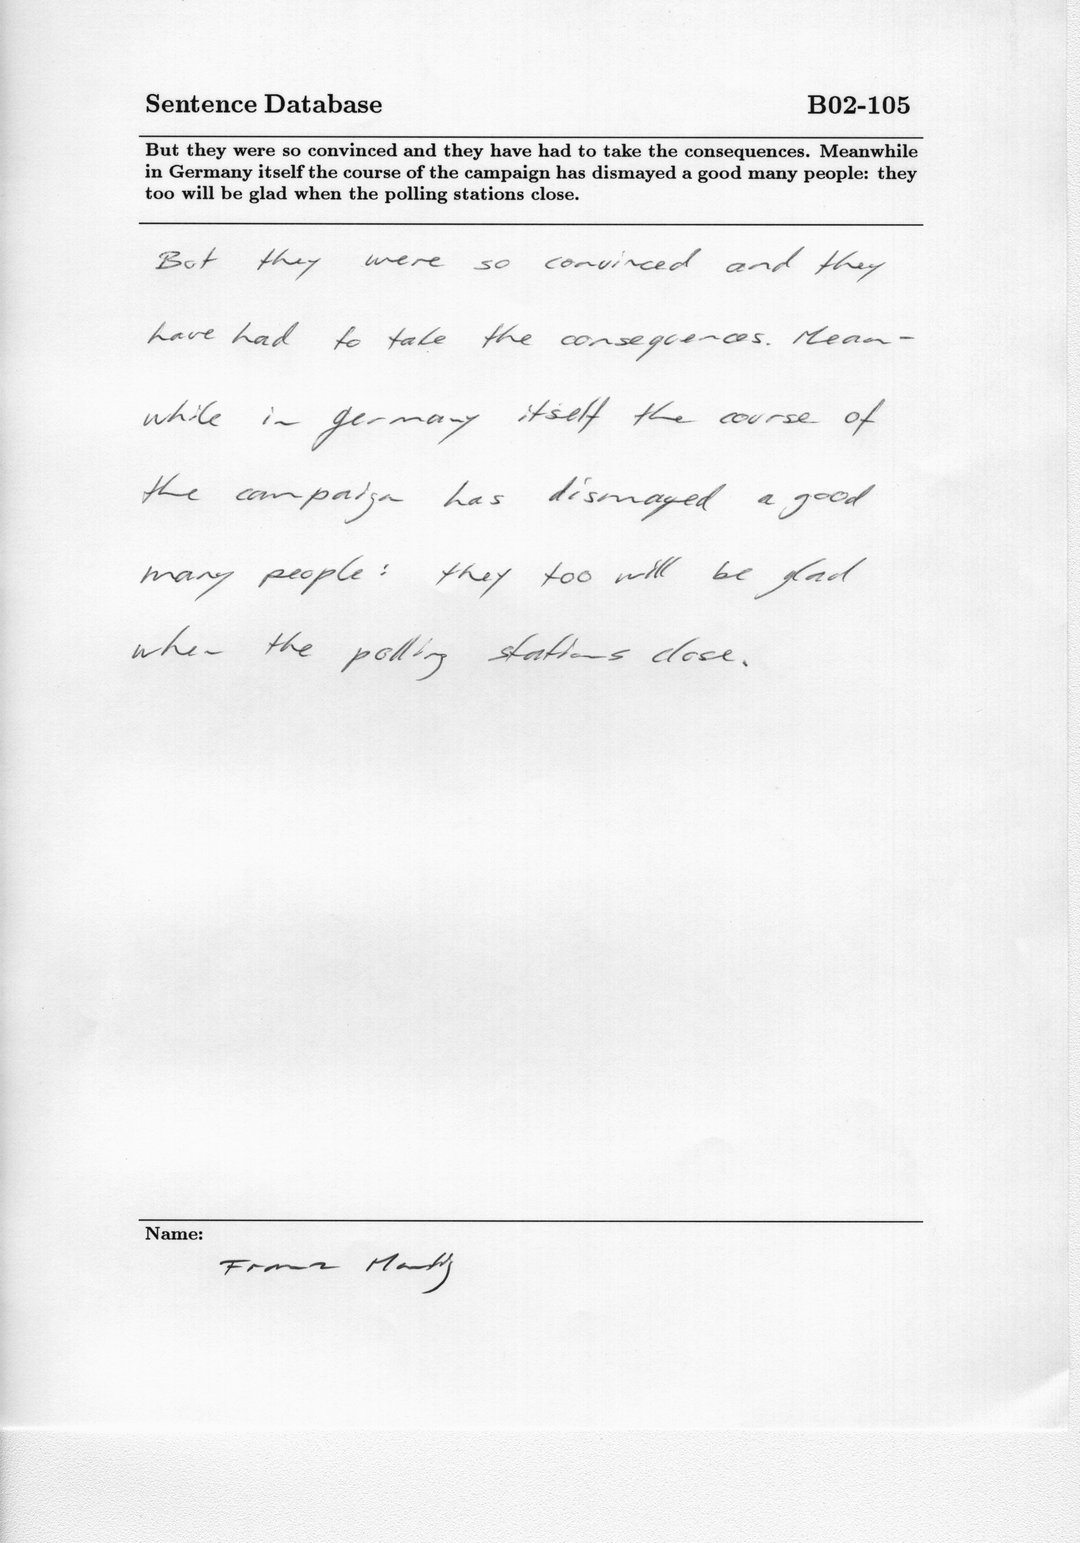 Sentence Database B02-105
But they were so convinced and they have had to take the consequences. Meanwhile
in Germany itself the course of the campaign has dismayed a good many people: they
too will be glad when the polling stations close.
But they were so convinced and they
have had to take the consequences. Mean-
while in Germany itself the course of
the campaign has dismayed a good
many people: they too will be glad
when the polling stations close.
Name:
Franz